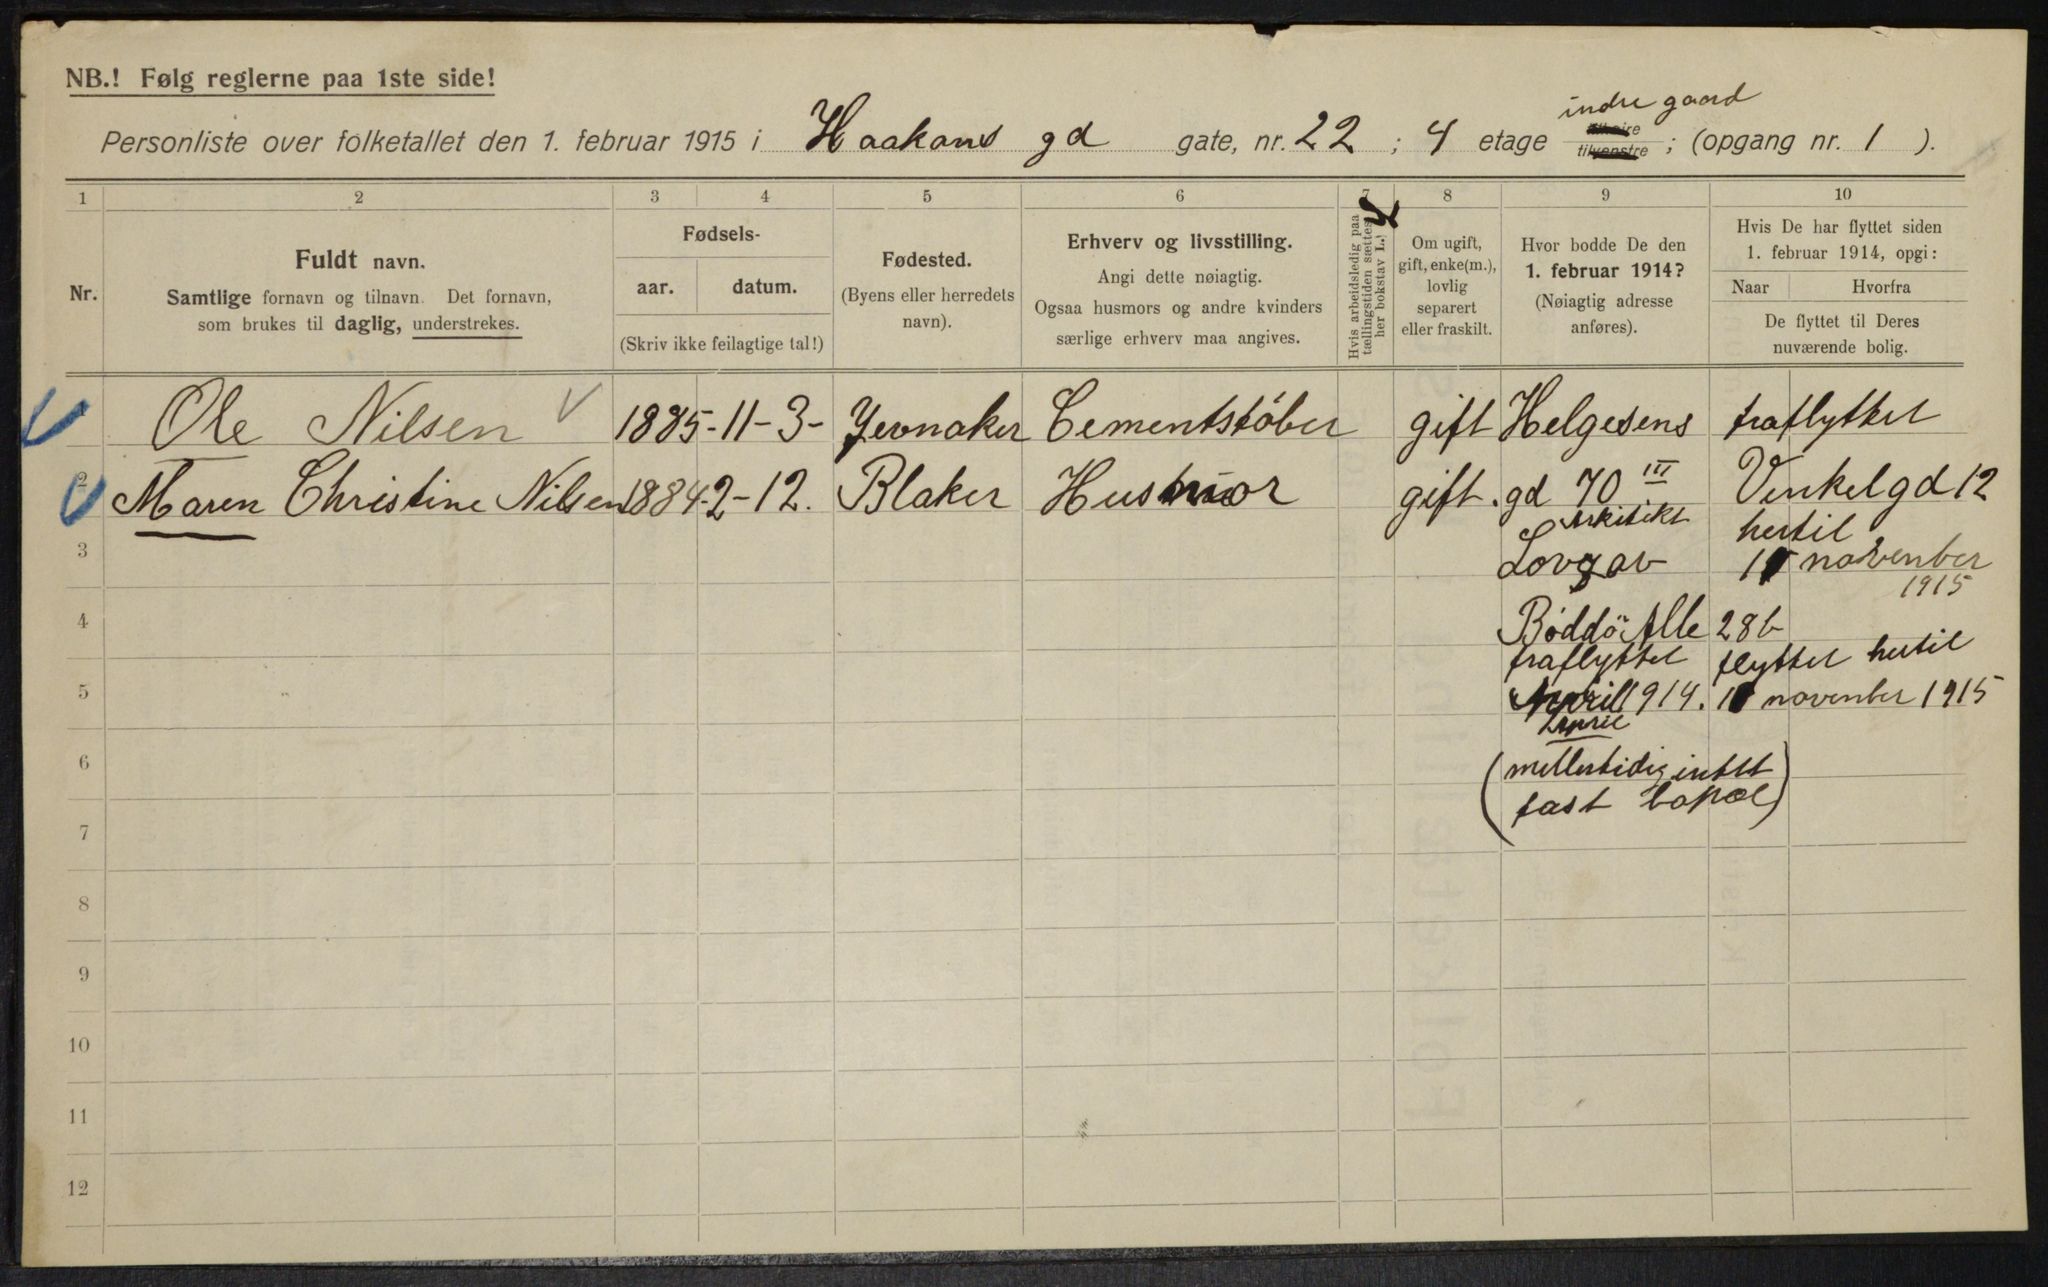 NB.! Følg reglerne paa 1ste side!
indre gaard
Personliste over folketallet den 1. februar 1915 i Haakons gd gate, nr. 22 ; 4 etage tilvenstre ; (opgang nr. 1 ).
1 2 3 4 5 6 7 8 9 10
Nr.
Fuldt navn.
Samtlige fornavn og tilnavn. Det fornavn,
som brukes til daglig, understrekes.
Fødsels-
aar. datum.
(Skriv ikke feilagtige tal!)
Fødested.
(Byens eller herredets
navn).
Erhverv og livsstilling.
Angi dette nøiagtig.
Ogsaa husmors og andre kvinders
særlige erhverv maa angives.
Hvis arbeidsledig paa
tællingstiden sættes
her bokstav L.
Om ugift,
gift, enke(m.),
lovlig
separert
eller fraskilt.
Hvor bodde De den
1. februar 1914?
(Nøiagtig adresse
anføres).
Hvis De har flyttet siden
1. februar 1914, opgi:
Naar Hvorfra
De flyttet til Deres
nuværende bolig.
1 Ole Nilsen 1885-11-3- Jevnaker Cementstöber gift Helgesens fraflyttet
2 Maren Christine Nilsen 1884-2-12. Blaker Husmor gift. gd 70 III Venkelgd 12
Arkitekt hertil
3 Lovgav 1 november
1915
4 Böddö Alle 28b
fraflyttet flyttet hertil
5 April 1914. 1 november 1915
April
6 (mellertidig intet
fast bopæl)
7
8
9
10
11
12